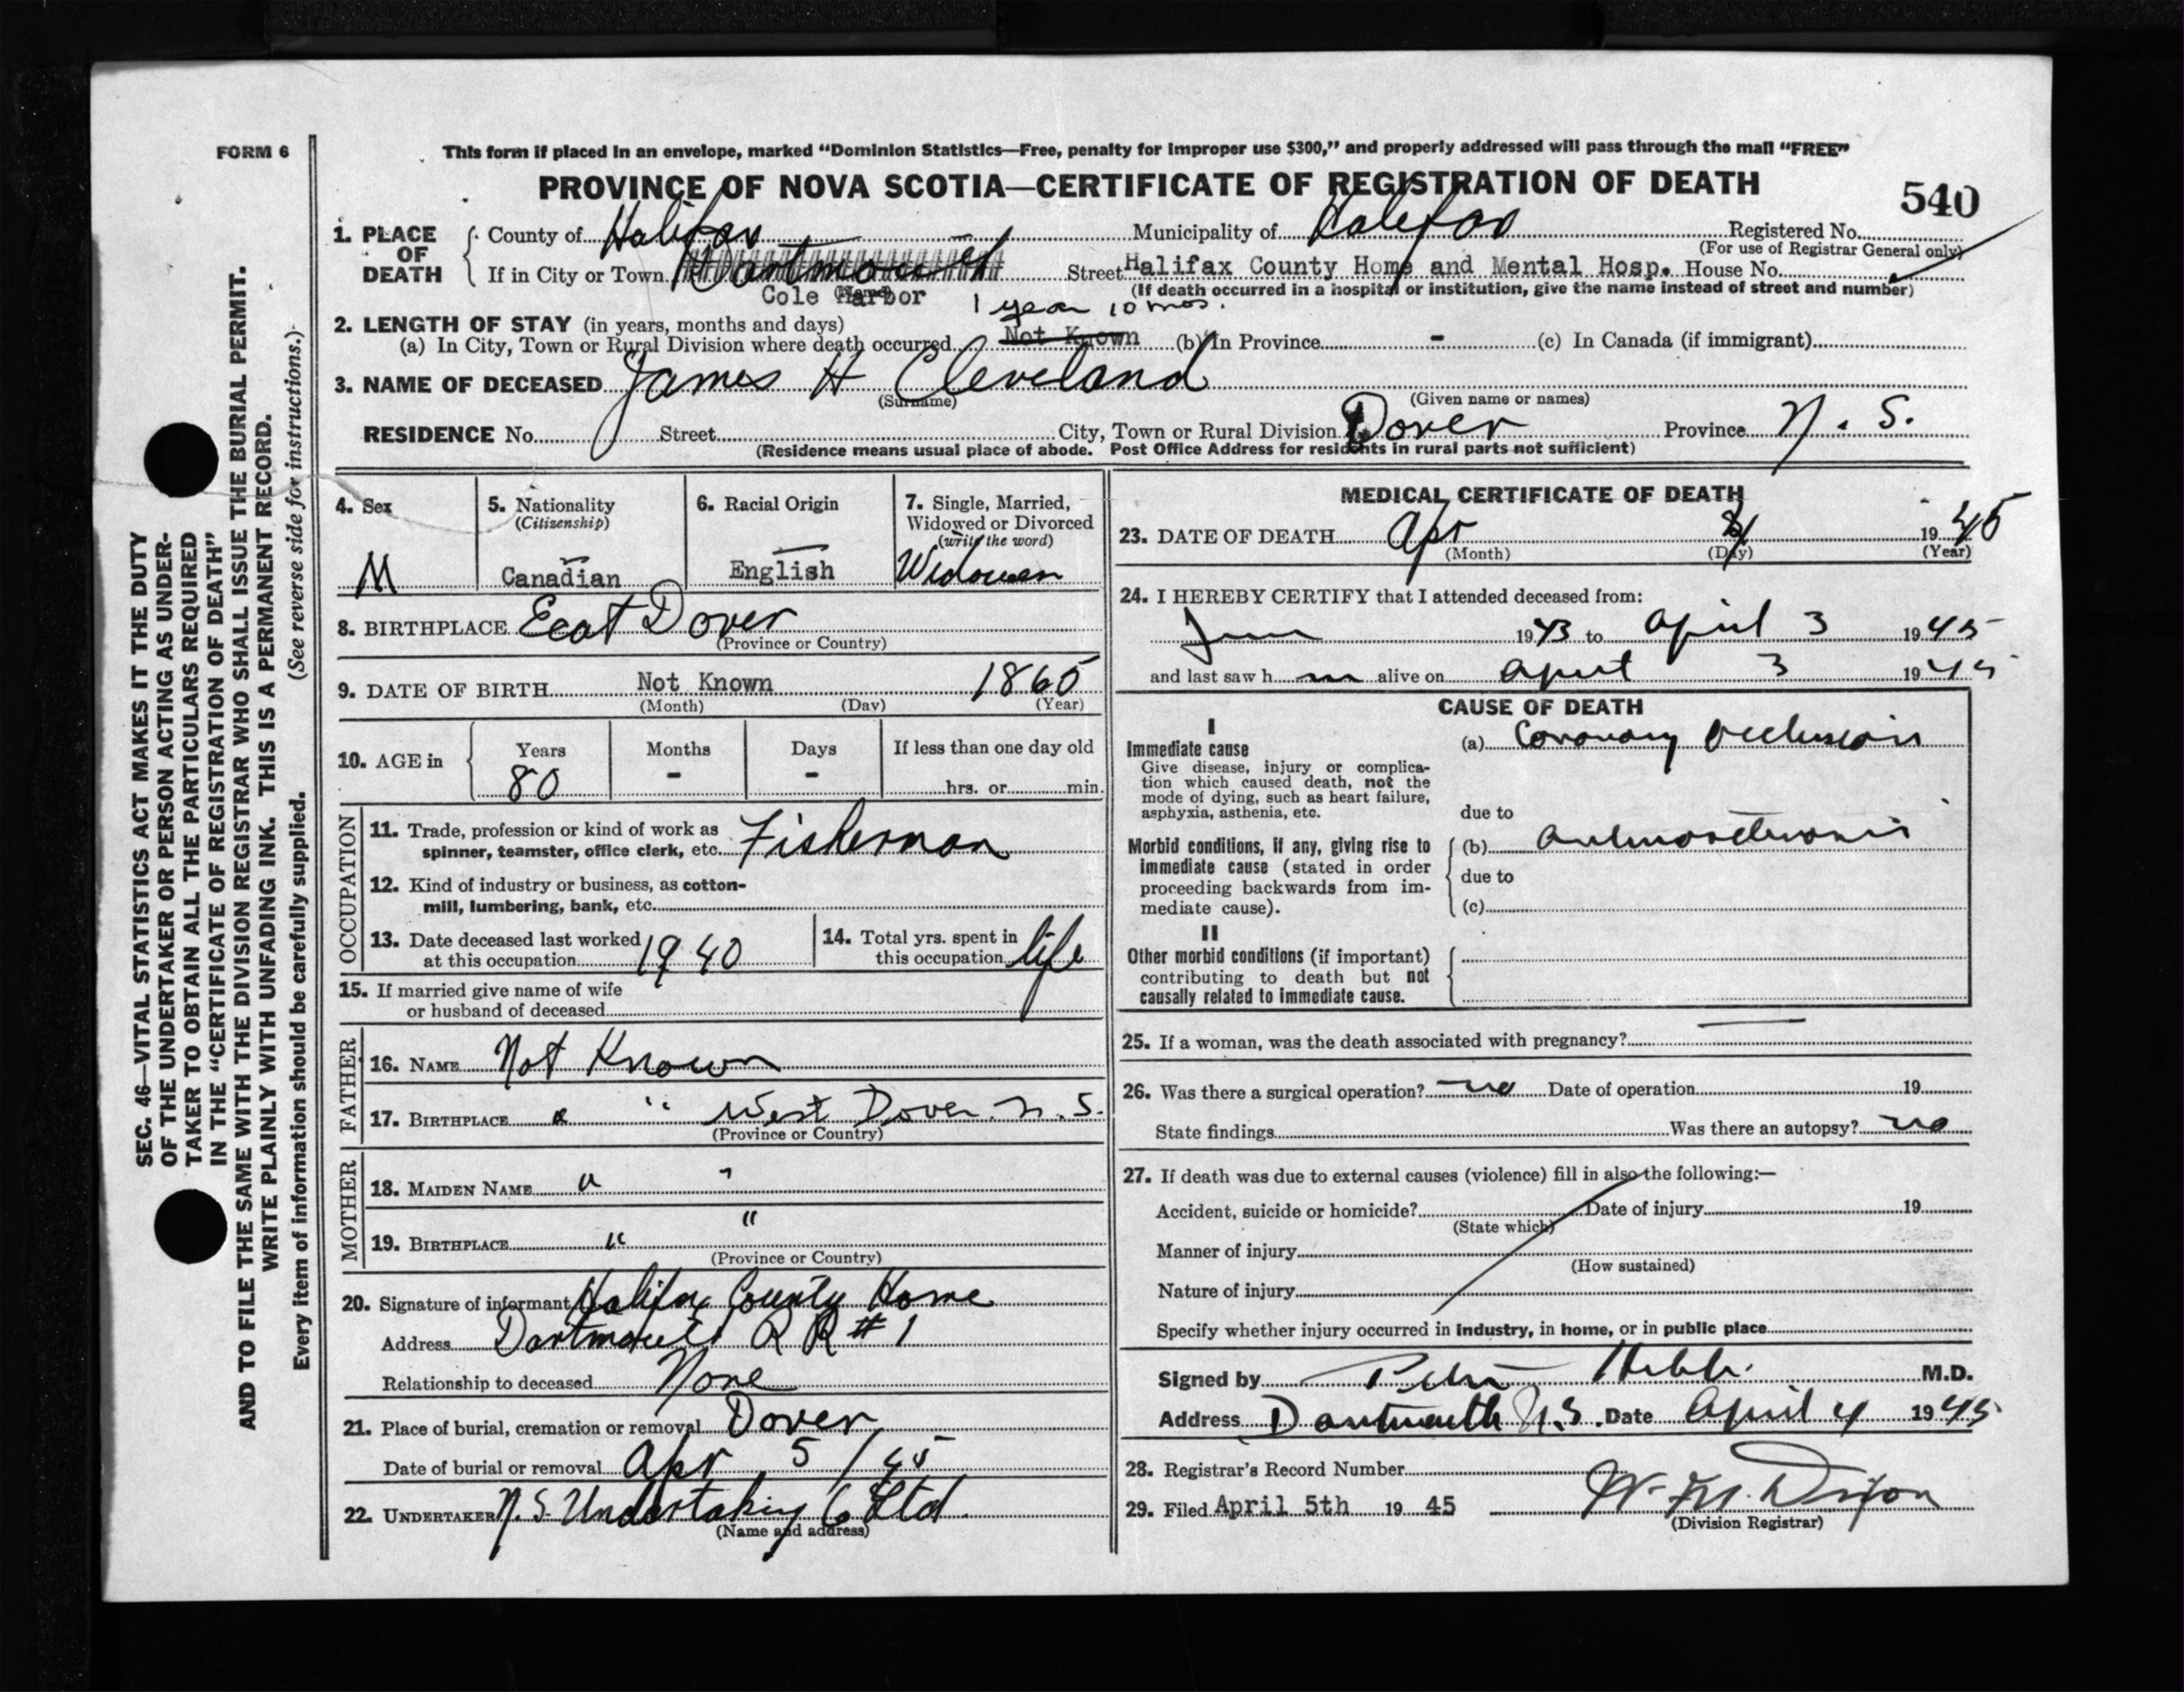 FORM 6
This form if placed in an envelope, marked "Dominion Statistics—Free, penalty for improper use $300," and properly addressed will pass through the mail "FREE"
PROVINCE OF NOVA SCOTIA—CERTIFICATE OF REGISTRATION OF DEATH
540
1. PLACE OF DEATH
County of Halifax Municipality of Halifax Registered No.
(For use of Registrar General only)
If in City or Town Dartmouth Street Halifax County Home and Mental Hosp. House No.
Cole Harbor (If death occurred in a hospital or institution, give the name instead of street and number)
1 year 10 mos.
2. LENGTH OF STAY (in years, months and days)
(a) In City, Town or Rural Division where death occurred Not Known (b) In Province - (c) In Canada (if immigrant)
3. NAME OF DECEASED James H Cleveland
(Surname) (Given name or names)
RESIDENCE No. Street City, Town or Rural Division Dover Province N. S.
(Residence means usual place of abode. Post Office Address for residents in rural parts not sufficient)
4. Sex 5. Nationality 6. Racial Origin 7. Single, Married,
(Citizenship) Widowed or Divorced
(write the word)
M Canadian English Widower
8. BIRTHPLACE East Dover
(Province or Country)
9. DATE OF BIRTH Not Known 1865
(Month) (Day) (Year)
10. AGE in Years Months Days If less than one day old
80 - - hrs. or min.
OCCUPATION
11. Trade, profession or kind of work as
spinner, teamster, office clerk, etc. Fisherman
12. Kind of industry or business, as cotton-
mill, lumbering, bank, etc.
13. Date deceased last worked 14. Total yrs. spent in
at this occupation 1940 this occupation life
15. If married give name of wife
or husband of deceased
FATHER
16. NAME Not Known
17. BIRTHPLACE " " West Dover N. S.
(Province or Country)
MOTHER
18. MAIDEN NAME " "
19. BIRTHPLACE " "
(Province or Country)
20. Signature of informant Halifax County Home
Address Dartmouth R R # 1
Relationship to deceased None
21. Place of burial, cremation or removal Dover
Date of burial or removal Apr 5/45
22. UNDERTAKER N. S. Undertaking Co Ltd.
(Name and address)
MEDICAL CERTIFICATE OF DEATH
23. DATE OF DEATH Apr 1945
(Month) (Day) (Year)
24. I HEREBY CERTIFY that I attended deceased from:
June 1943 to April 3 1945
and last saw h im alive on April 3 1945
CAUSE OF DEATH
I
Immediate cause (a) Coronary Occlusion
Give disease, injury or complica-
tion which caused death, not the
mode of dying, such as heart failure,
asphyxia, asthenia, etc. due to
Morbid conditions, if any, giving rise to (b)
immediate cause (stated in order due to
proceeding backwards from im-
mediate cause). (c)
II
Other morbid conditions (if important)
contributing to death but not
causally related to immediate cause.
25. If a woman, was the death associated with pregnancy? —
26. Was there a surgical operation? no Date of operation 19
State findings Was there an autopsy? no
27. If death was due to external causes (violence) fill in also the following:—
Accident, suicide or homicide? Date of injury 19
(State which)
Manner of injury
(How sustained)
Nature of injury
Specify whether injury occurred in industry, in home, or in public place
Signed by M.D.
Address Dartmouth N.S. Date April 4 1945
28. Registrar's Record Number
29. Filed April 5th 19 45 W. M. Dixon
(Division Registrar)
SEC. 46—VITAL STATISTICS ACT MAKES IT THE DUTY
OF THE UNDERTAKER OR PERSON ACTING AS UNDER-
TAKER TO OBTAIN ALL THE PARTICULARS REQUIRED
IN THE "CERTIFICATE OF REGISTRATION OF DEATH"
AND TO FILE THE SAME WITH THE DIVISION REGISTRAR WHO SHALL ISSUE THE BURIAL PERMIT.
WRITE PLAINLY WITH UNFADING INK. THIS IS A PERMANENT RECORD.
Every item of information should be carefully supplied. (See reverse side for instructions.)